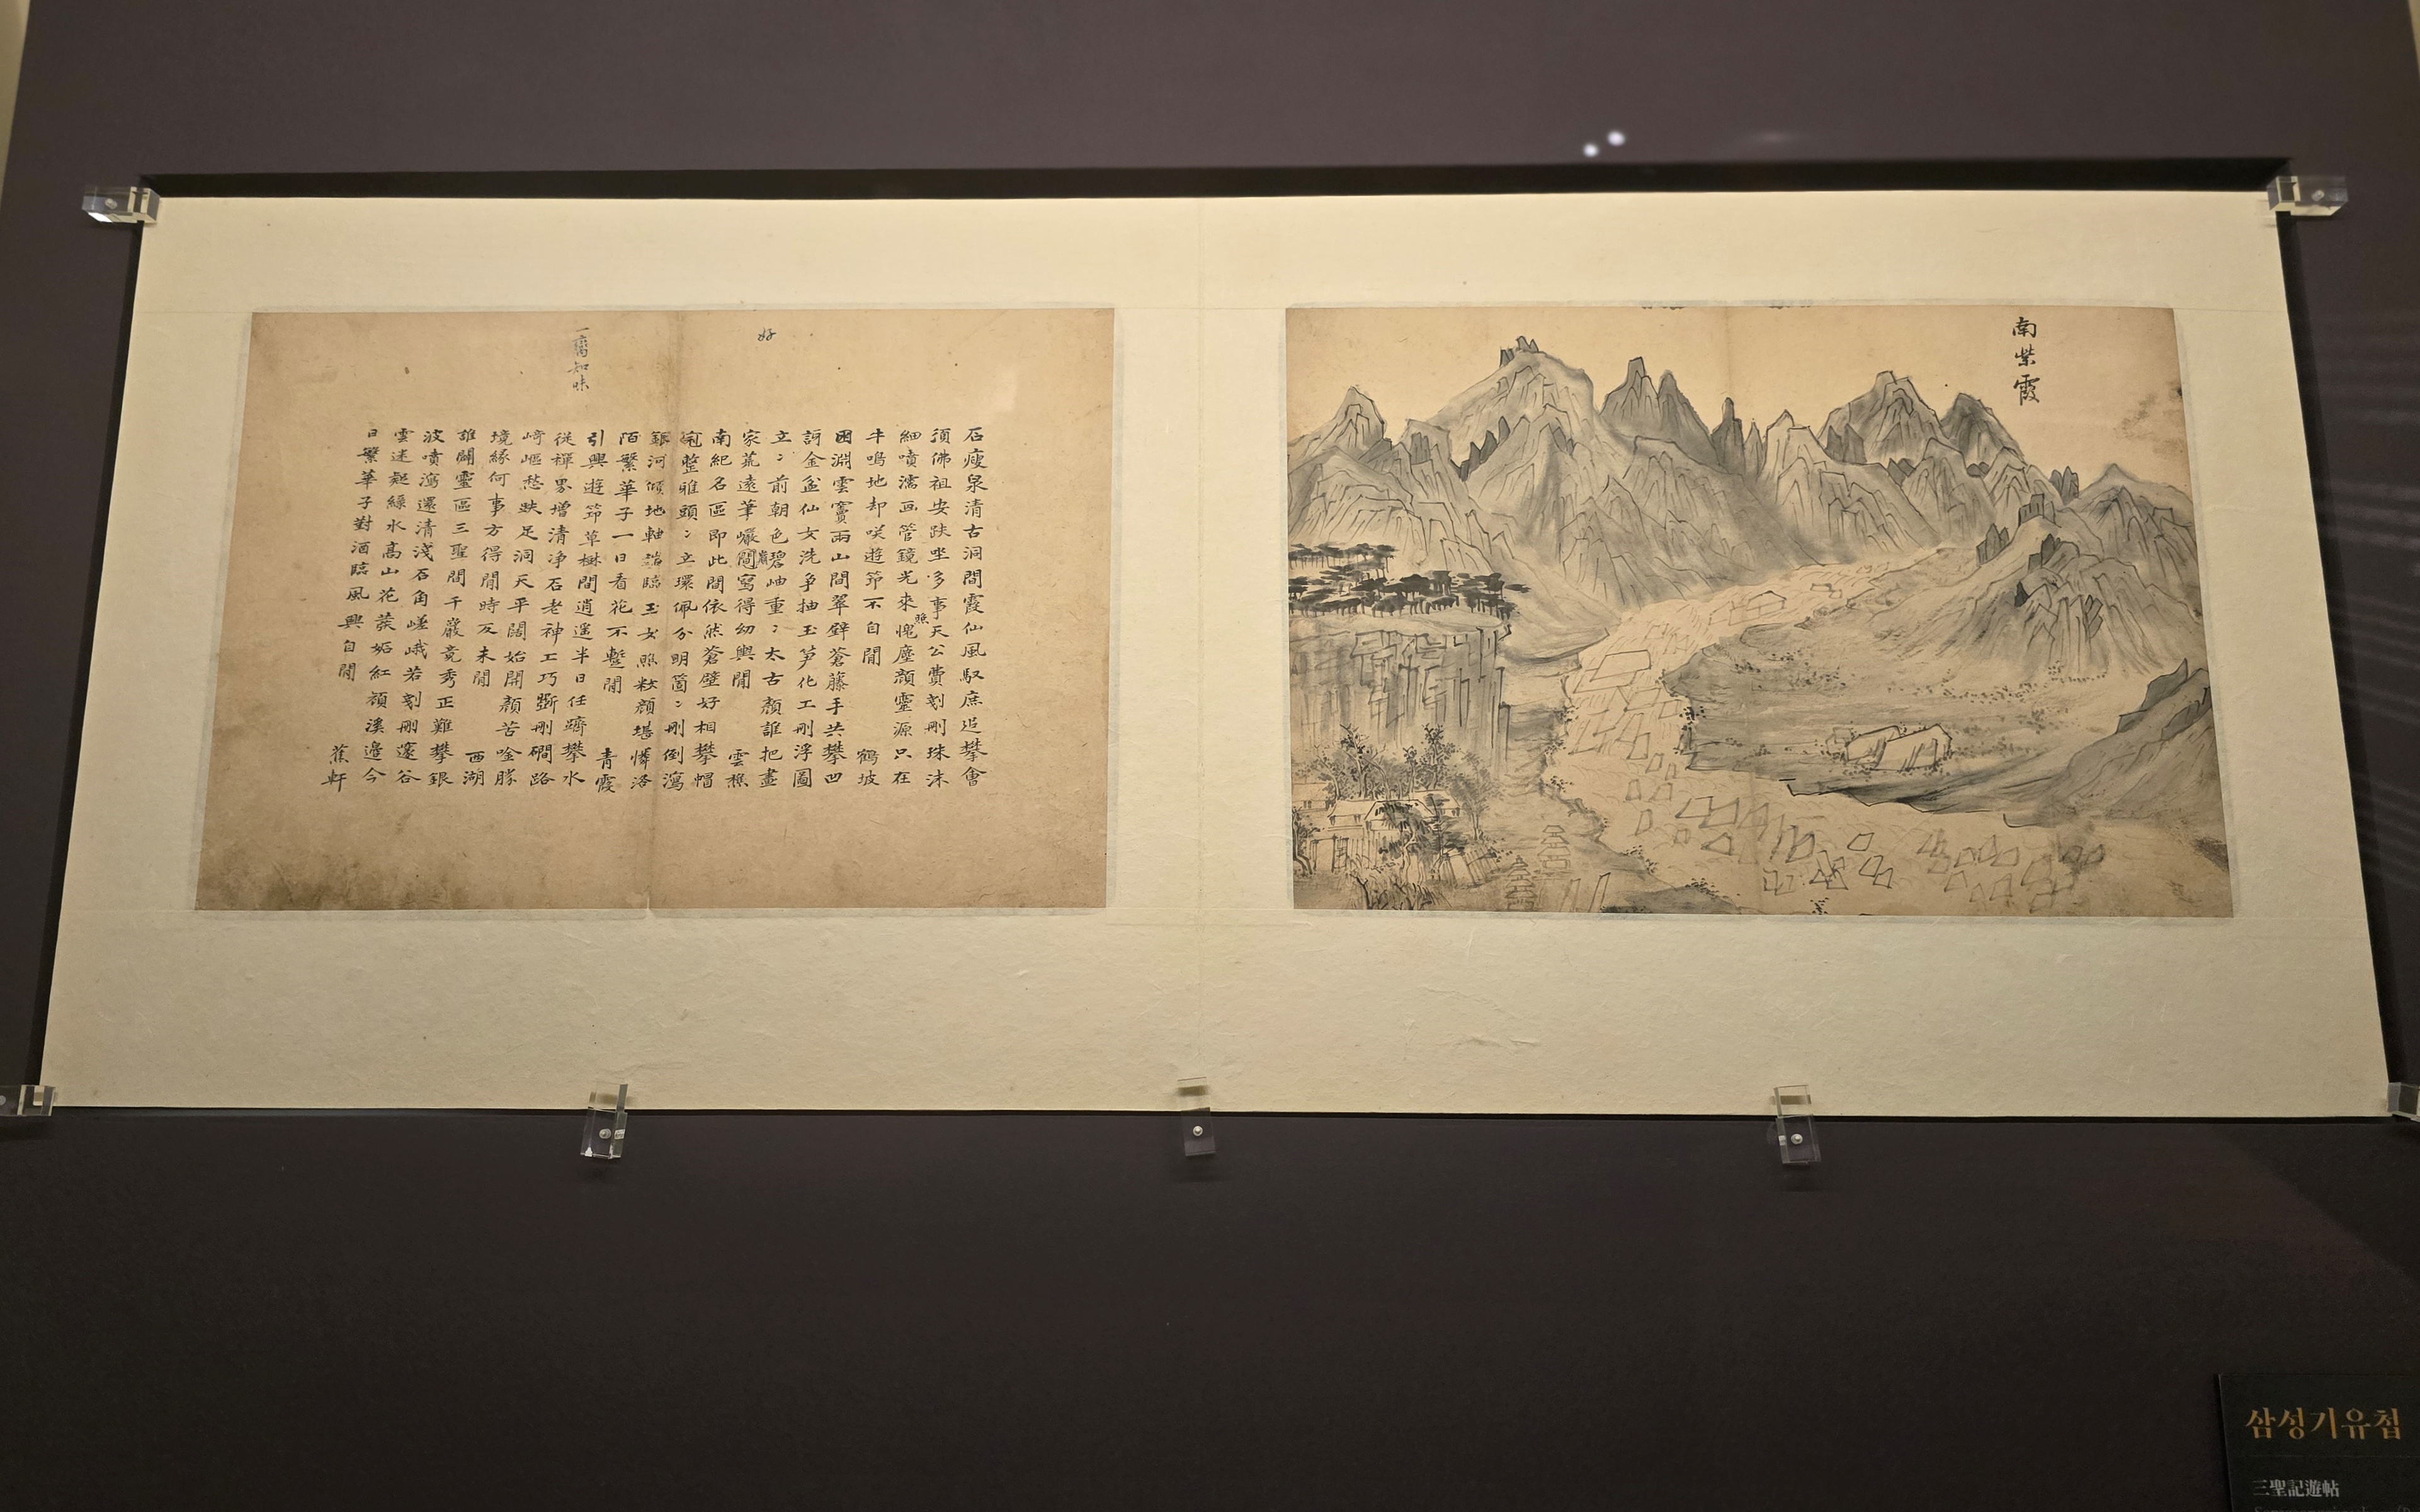 南紫霞
好
一臠知味
石瘦泉清古洞間霞仙風馭庶追攀會
須佛祖安趺坐多事天公費剜刪珠沫
細噴濡画管鏡光來照愧塵顔靈源只在
牛鳴地却咲遊笻不自閒 鶴坡
囷淵雲竇兩山間翠壁蒼藤手共攀凹
訝金盆仙女洗爭抽玉笋化工刪浮圖
立〻前朝色碧岫重〻太古顔誰把畫
家荒遠筆巖寫得幼輿閒 雲樵
南紀名區即此間依然蒼壁好相攀帽
整雅頭〻立環佩分明箇〻刪倒瀉
銀河傾地軸臨玉女照粧顔堪憐洛
陌繁華子一日看花不暫閒 青霞
引興遊笻草樹間逍遥半日任躋攀水
從禪界增清净石老神工巧斲刪磵路
崎嶇愁趺足洞天平闊始開顔苦唫勝
境緣何事方得閒時反未閒 西湖
誰闢靈區三聖間千巖竟秀正難攀銀
波噴瀉還清淺石角嵯峨若剜刪邃谷
雲迷凝綠水高山花發妬紅顔溪邊今
日繁華子對酒臨風興自閒 蕉軒
삼성기유첩
三聖記遊帖